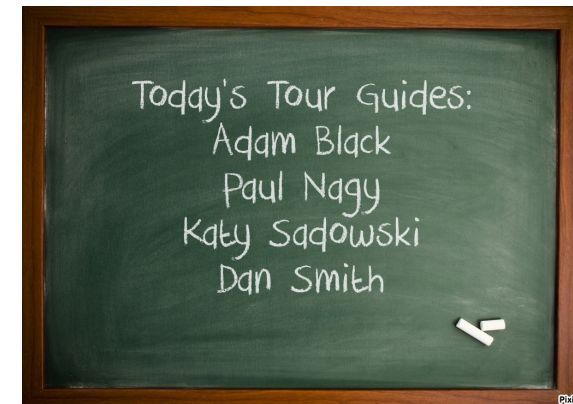 Today's Tour Guides:
Adam Black
Paul Nagy
Katy Sadowski
Dan Smith
Pixi